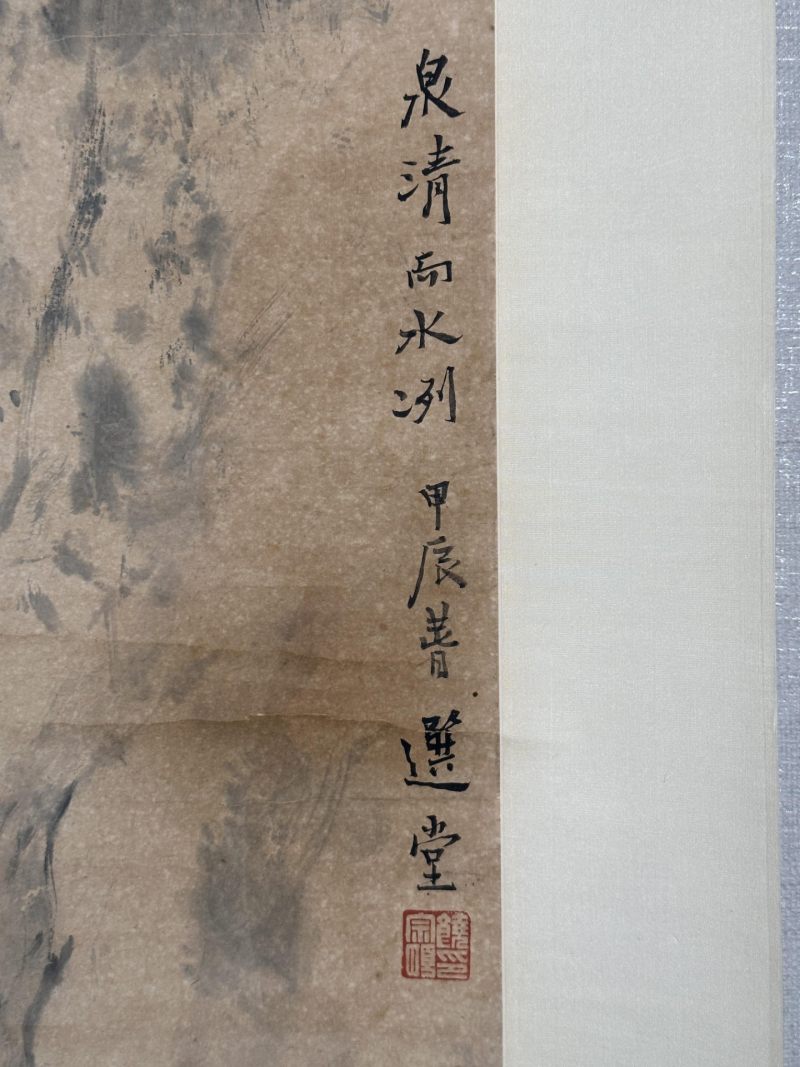 泉清而水冽 甲辰萅 選堂
饒印宗頤